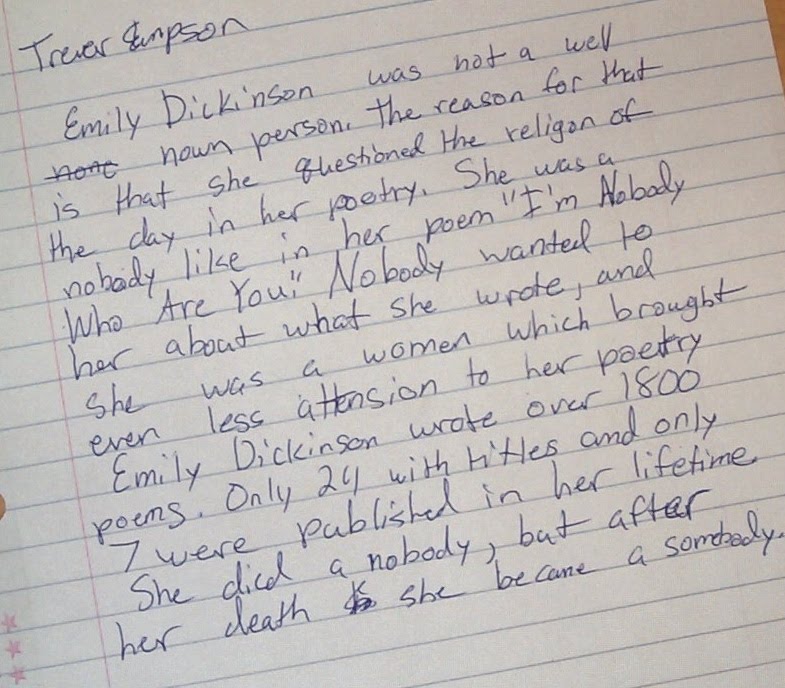 Trever Simpson
Emily Dickinson was not a well
none nown person. The reason for that
is that she questioned the religon of
the day in her poetry. She was a
nobody like in her poem "I'm Nobody
Who Are You". Nobody wanted to
her about what she wrote, and
she was a women which brought
even less attension to her poetry
Emily Dickinson wrote over 1800
poems. Only 24 with titles and only
7 were published in her lifetime
She died a nobody, but after
her death she became a somebody.